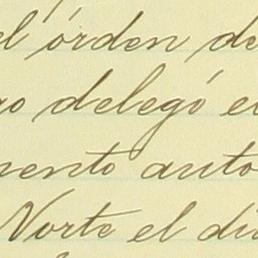 el órden de
ro delegó el
mento auto
Norte el día